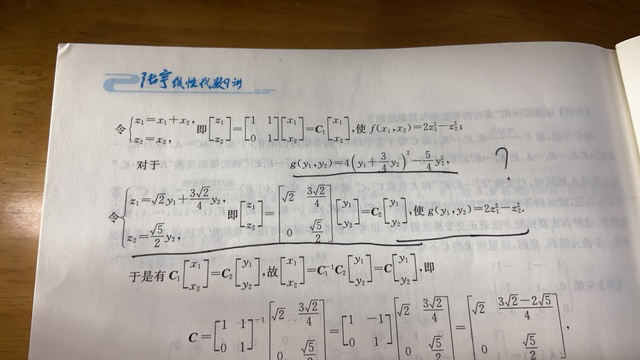 张宇线性代数9讲
令{z₁=x₁+x₂, z₂=x₂, 即[z₁ z₂]=[1 1 0 1][x₁ x₂]=C₁[x₁ x₂],使 f(x₁,x₂)=2z₁²-z₂²;
对于 g(y₁,y₂)=4(y₁+3/4 y₂)²-5/4 y₂², ?
令{z₁=√2y₁+3√2/4 y₂, z₂=√5/2 y₂, 即[z₁ z₂]=[√2 3√2/4 0 √5/2][y₁ y₂]=C₂[y₁ y₂],使 g(y₁,y₂)=2z₁²-z₂².
于是有 C₁[x₁ x₂]=C₂[y₁ y₂],故[x₁ x₂]=C₁⁻¹C₂[y₁ y₂]=C[y₁ y₂],即
C=[1 1 0 1]⁻¹[√2 3√2/4 0 √5/2]=[1 -1 0 1][√2 3√2/4 0 √5/2]=[√2 3√2-2√5/4 0 √5/2],